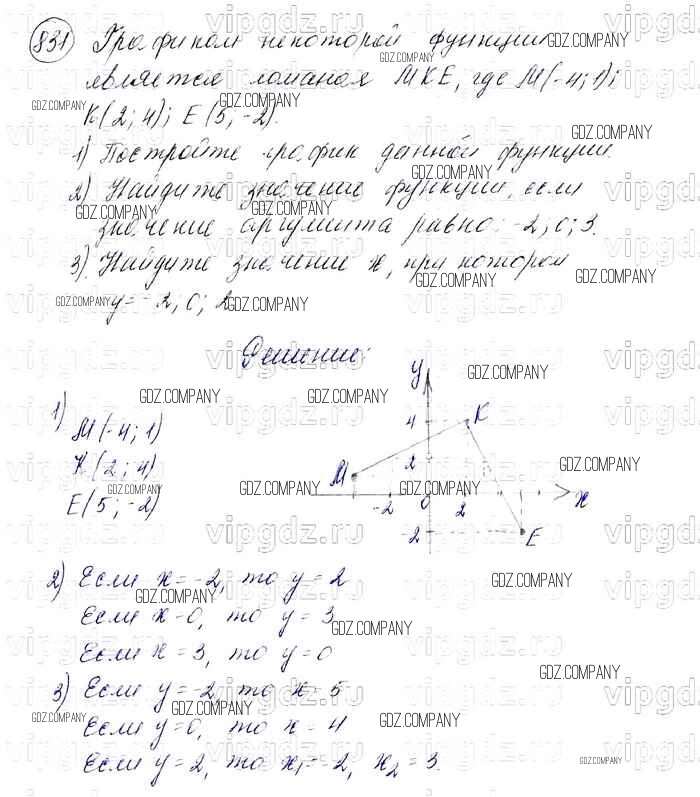 831 Графиком некоторой функции
является ломаная МКЕ, где М(-4;1);
К(2;4); Е(5;-2).
1) Постройте график данной функции.
2) Найдите значение функции, если
значение аргумента равно: -2; 0; 3.
3) Найдите значение х, при котором
у=-2; 0; 2
Решение:
1)
М(-4;1)
К(2;4)
Е(5;-2)
у
4
К
2
М
-2
0
2
х
-2
Е
2) Если х=-2, то у=2
Если х=0, то у=3
Если х=3, то у=0
3) Если у=-2, то х=5
Если у=0, то х=4
Если у=2, то х₁=-2, х₂=3.
GDZ.COMPANY
vipgdz.ru